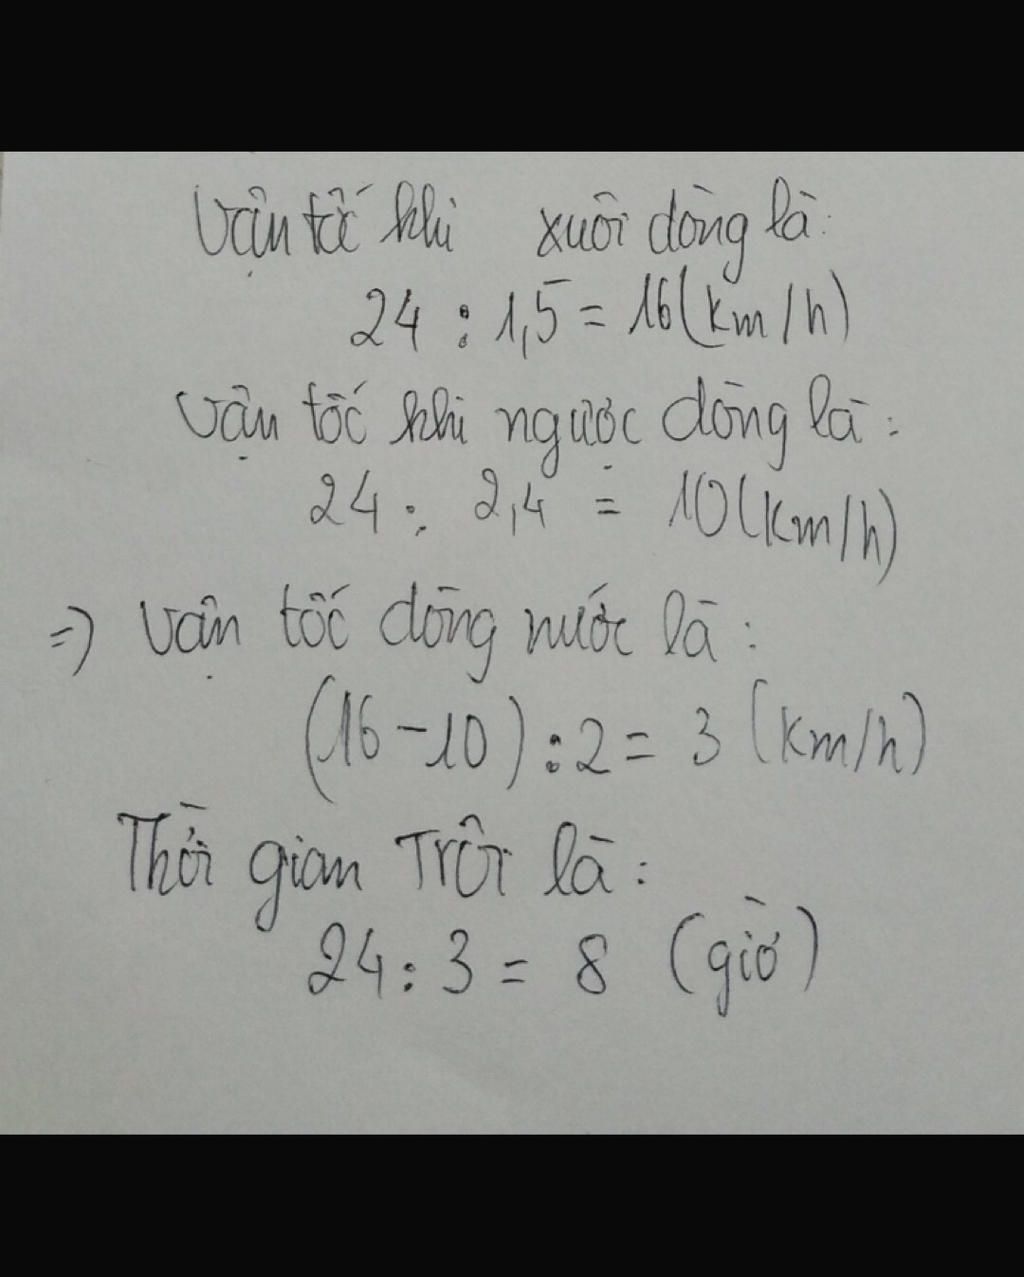 Vận tốc khi xuôi dòng là:
24 : 1,5 = 16 (km/h)
Vận tốc khi ngược dòng là:
24 : 2,4 = 10 (km/h)
=) Vận tốc dòng nước là:
(16-10) : 2 = 3 (km/h)
Thời gian Trôi là:
24 : 3 = 8 (giờ)